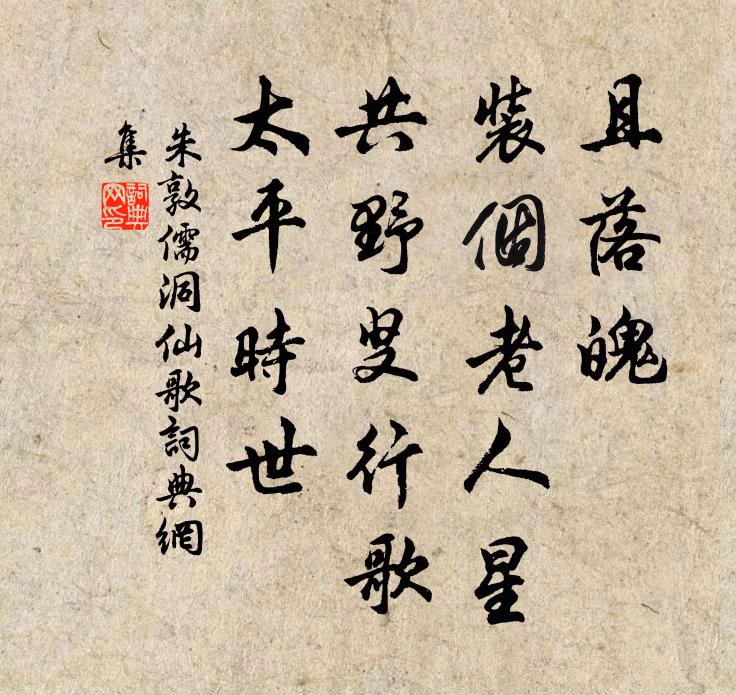 且落魄
裝個老人星
共野叟行歌
太平時世
朱敦儒洞仙歌詞典網
集
詞典網印